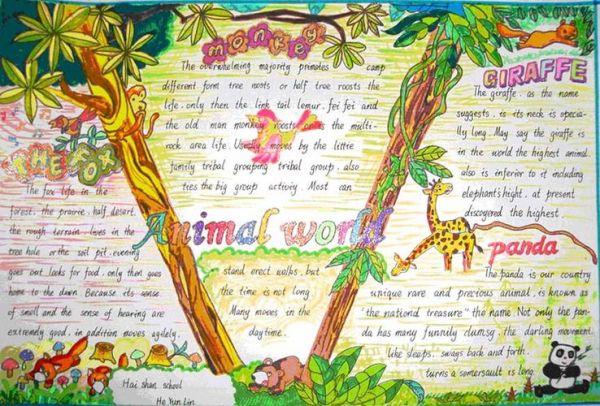 monkey
The overwhelming majority primates camp
different form tree roots or half tree roosts the
life. only then the link tail lemur. fei fei and
the old man monkey roosts the multi-
rock area life. Usually moves by the little
family tribal grouping tribal group. also
ties the big group activity. Most can
stand erect walks. but
the time is not long
Many moves in the
daytime.
GIRAFFE
The giraffe. as the name
suggests. is its neck is especia-
lly long. May say the giraffe is
in the world the highest animal.
also is inferior to it including
elephant's hight. at present
discovered the highest
THE FOX
The fox life in the
forest. the prairie. half desert.
the rough terrain. lives in the
tree hole or the soil pit. evening
goes out looks for food. only then goes
home to the dawn Because its sense
of smell and the sense of hearing are
extremely good. in addition moves agilely.
Animal world
panda
The panda is our country
unique rare and precious animal. is known as
"the national treasure" the name. Not only the pan-
da has many funnily clumsy. the darling movement.
like sleeps. sways back and forth.
turns a somersault is long.
Hai shan school
He Yun Lin